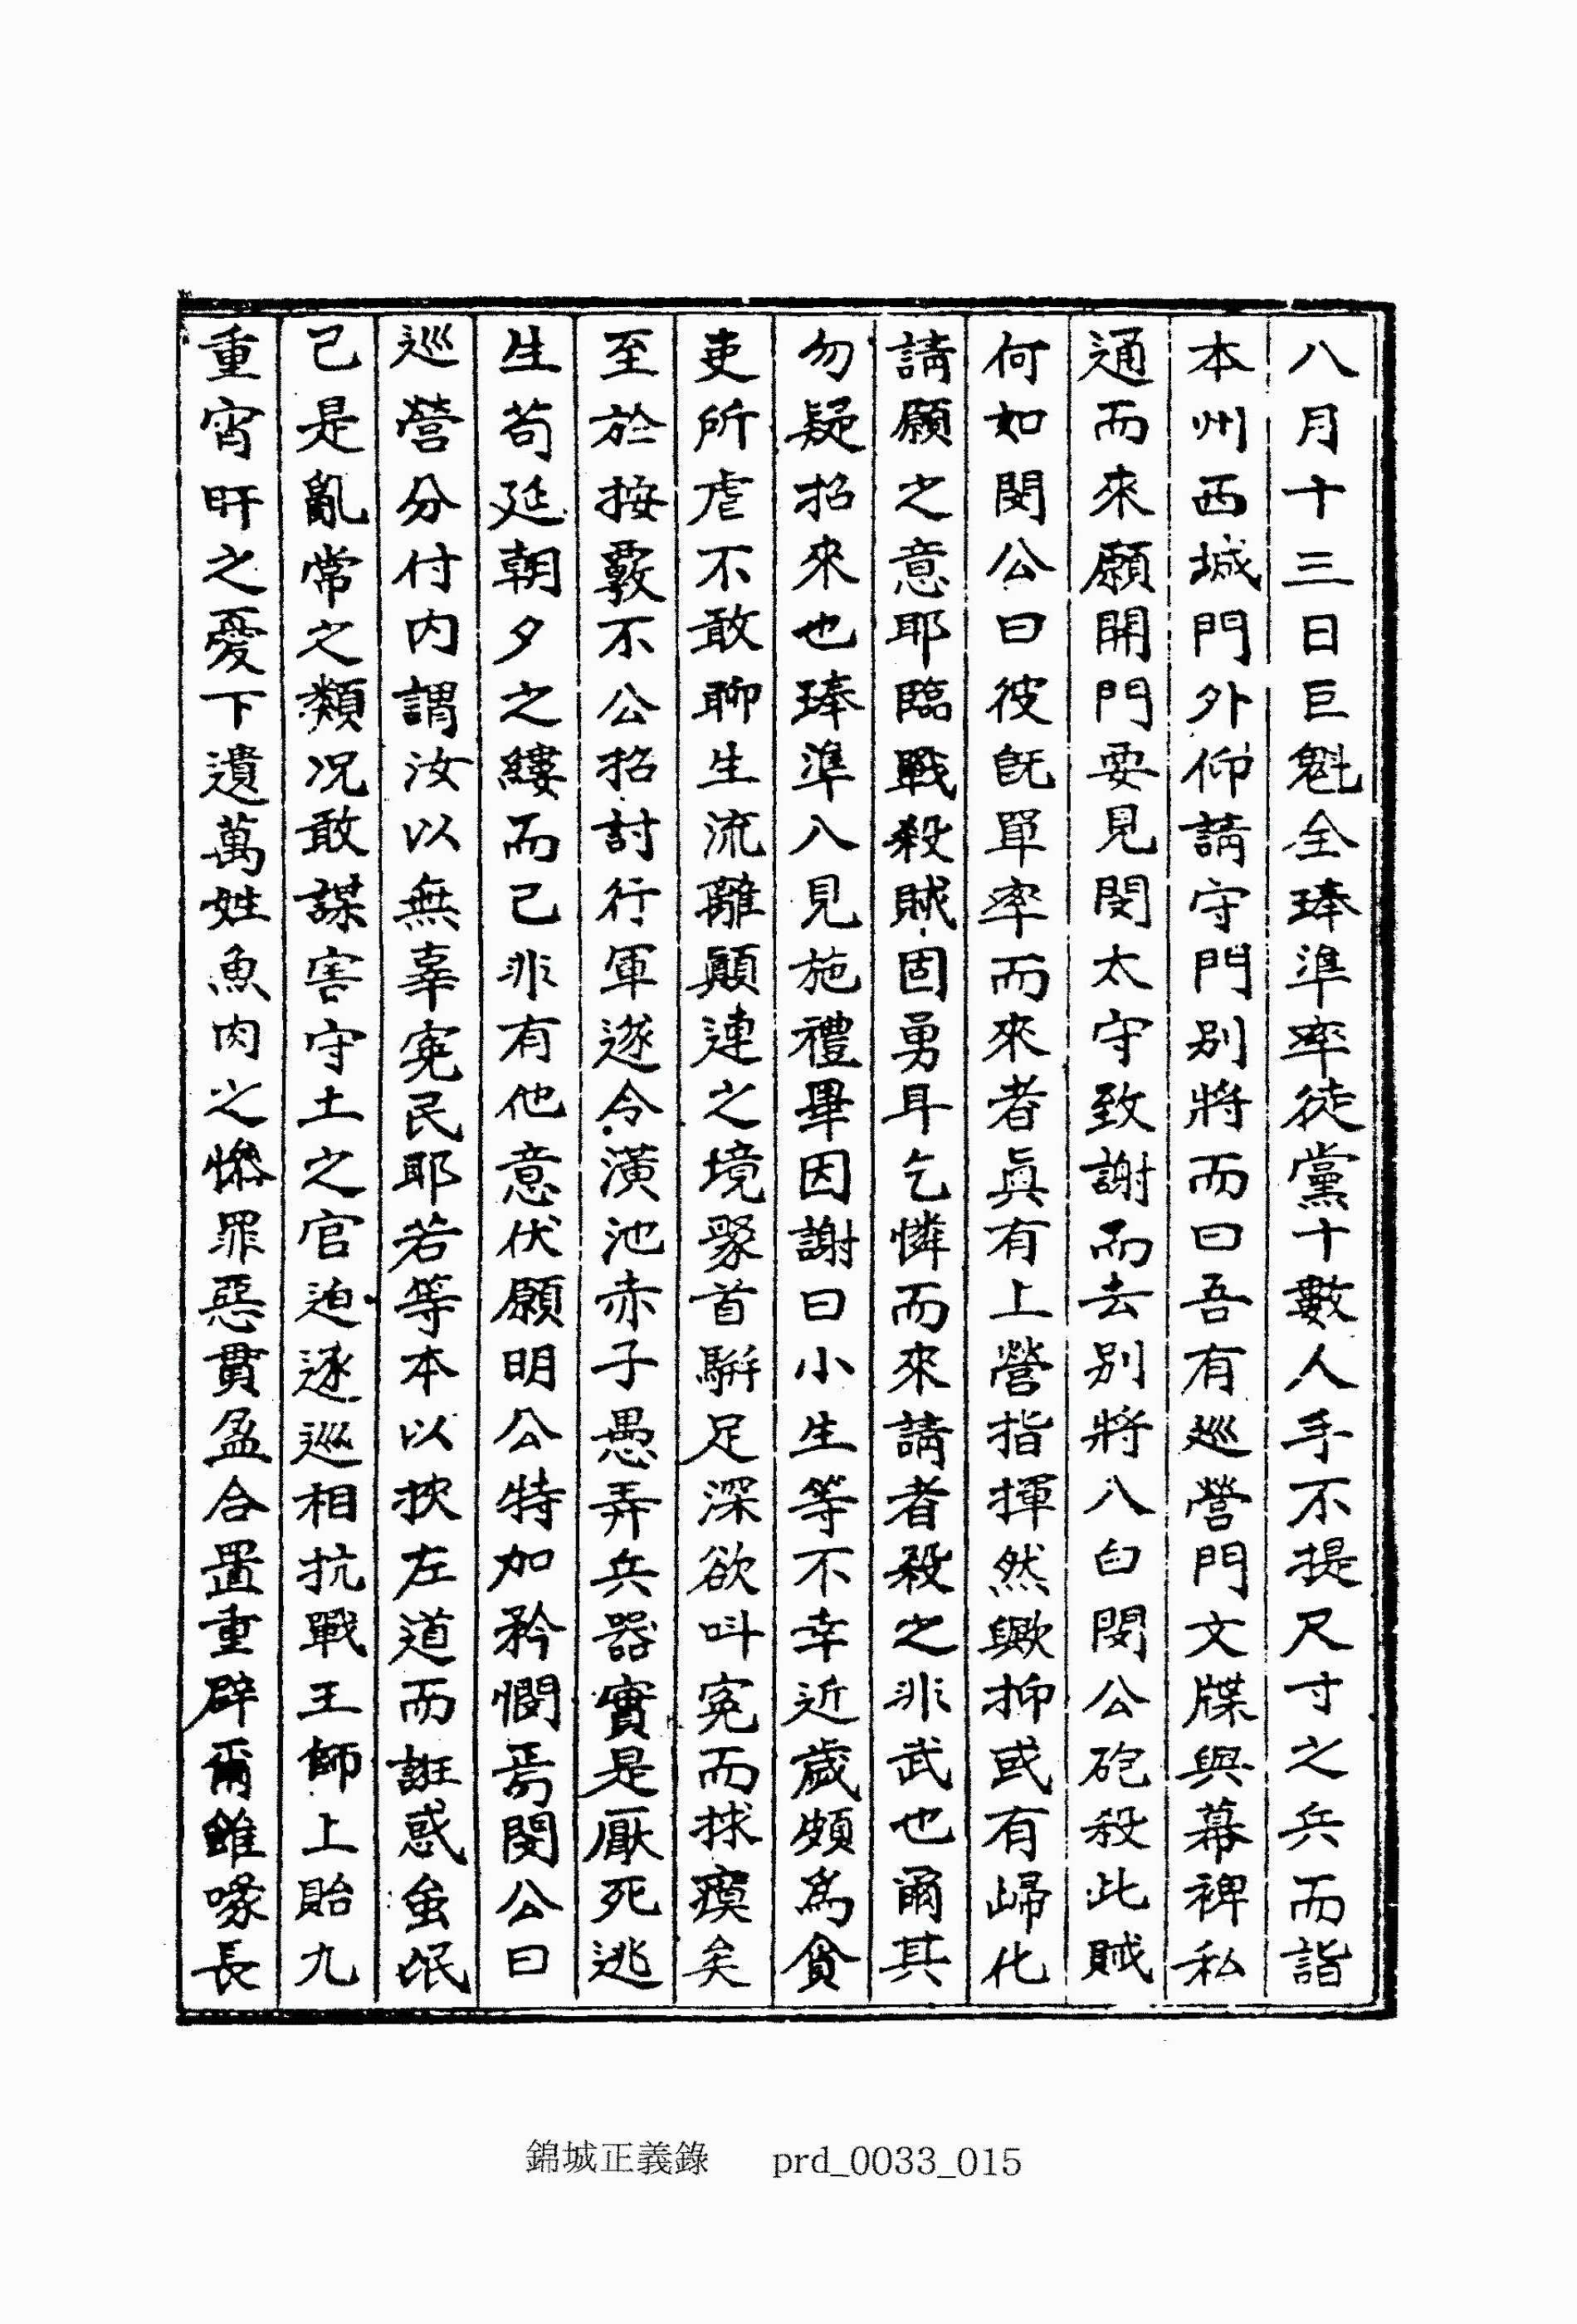 八月十三日巨魁全琫準率徒黨十數人手不提尺寸之兵而詣
本州西城門外仰請守門別將而曰吾有巡營門文牒與幕裨私
通而來願開門要見閔太守致謝而去別將入白閔公砲殺此賊
何如閔公曰彼旣單率而來者眞有上營指揮然歟抑或有歸化
請願之意耶臨戰殺賊固勇耳乞憐而來請者殺之非武也爾其
勿疑招來也琫準入見施禮畢因謝曰小生等不幸近歲頗爲貪
吏所虐不敢聊生流離顚連之境聚首騈足深欲呌寃而捄瘼矣
至於按覈不公招討行軍遂令潢池赤子愚弄兵器實是厭死逃
生苟延朝夕之縷而已非有他意伏願明公特加矜憫焉閔公曰
巡營分付內謂汝以無辜寃民耶若等本以挾左道而誑惑蚩氓
已是亂常之類况敢謀害守土之官迫逐巡相抗戰王師上貽九
重宵旰之憂下遺萬姓魚肉之慘罪惡貫盈合置重辟爾雖喙長
錦城正義錄 prd_0033_015